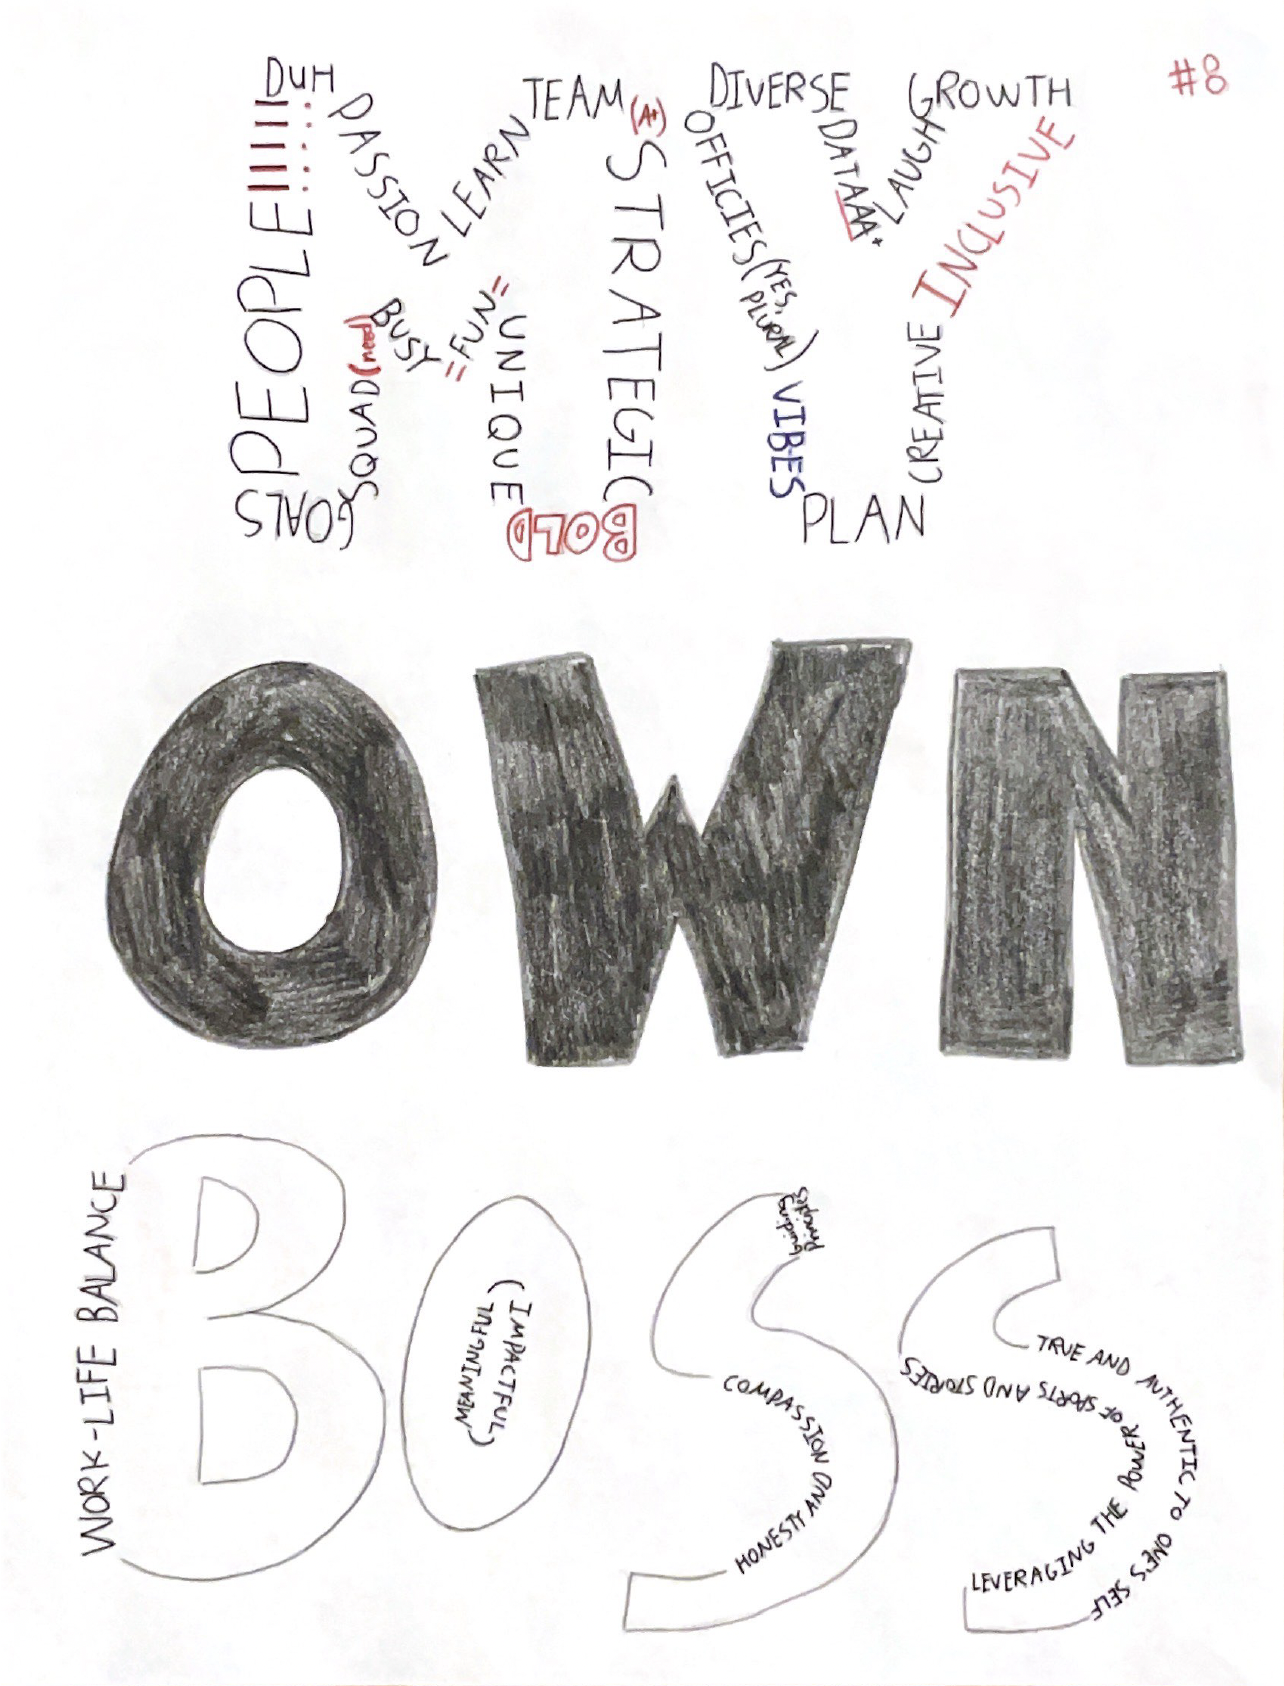 #8
DUH
PEOPLE!!!!!
PASSION
LEARN
TEAM (A+)
STRATEGIC
BOLD
UNIQUE
=FUN=
BUSY
SQUAD (need)
GOALS
DIVERSE
DATAAA.
LAUGH
GROWTH
INCLUSIVE
CREATIVE
PLAN
VIBES
OFFICIES (YES, PLURAL)
OWN
WORK-LIFE BALANCE
B
O
(IMPACTFUL)
MEANINGFUL
S
Guiding
Principles
HONESTY AND COMPASSION
S
TRUE AND AUTHENTIC TO ONE'S SELF
LEVERAGING THE POWER OF SPORTS AND STORIES